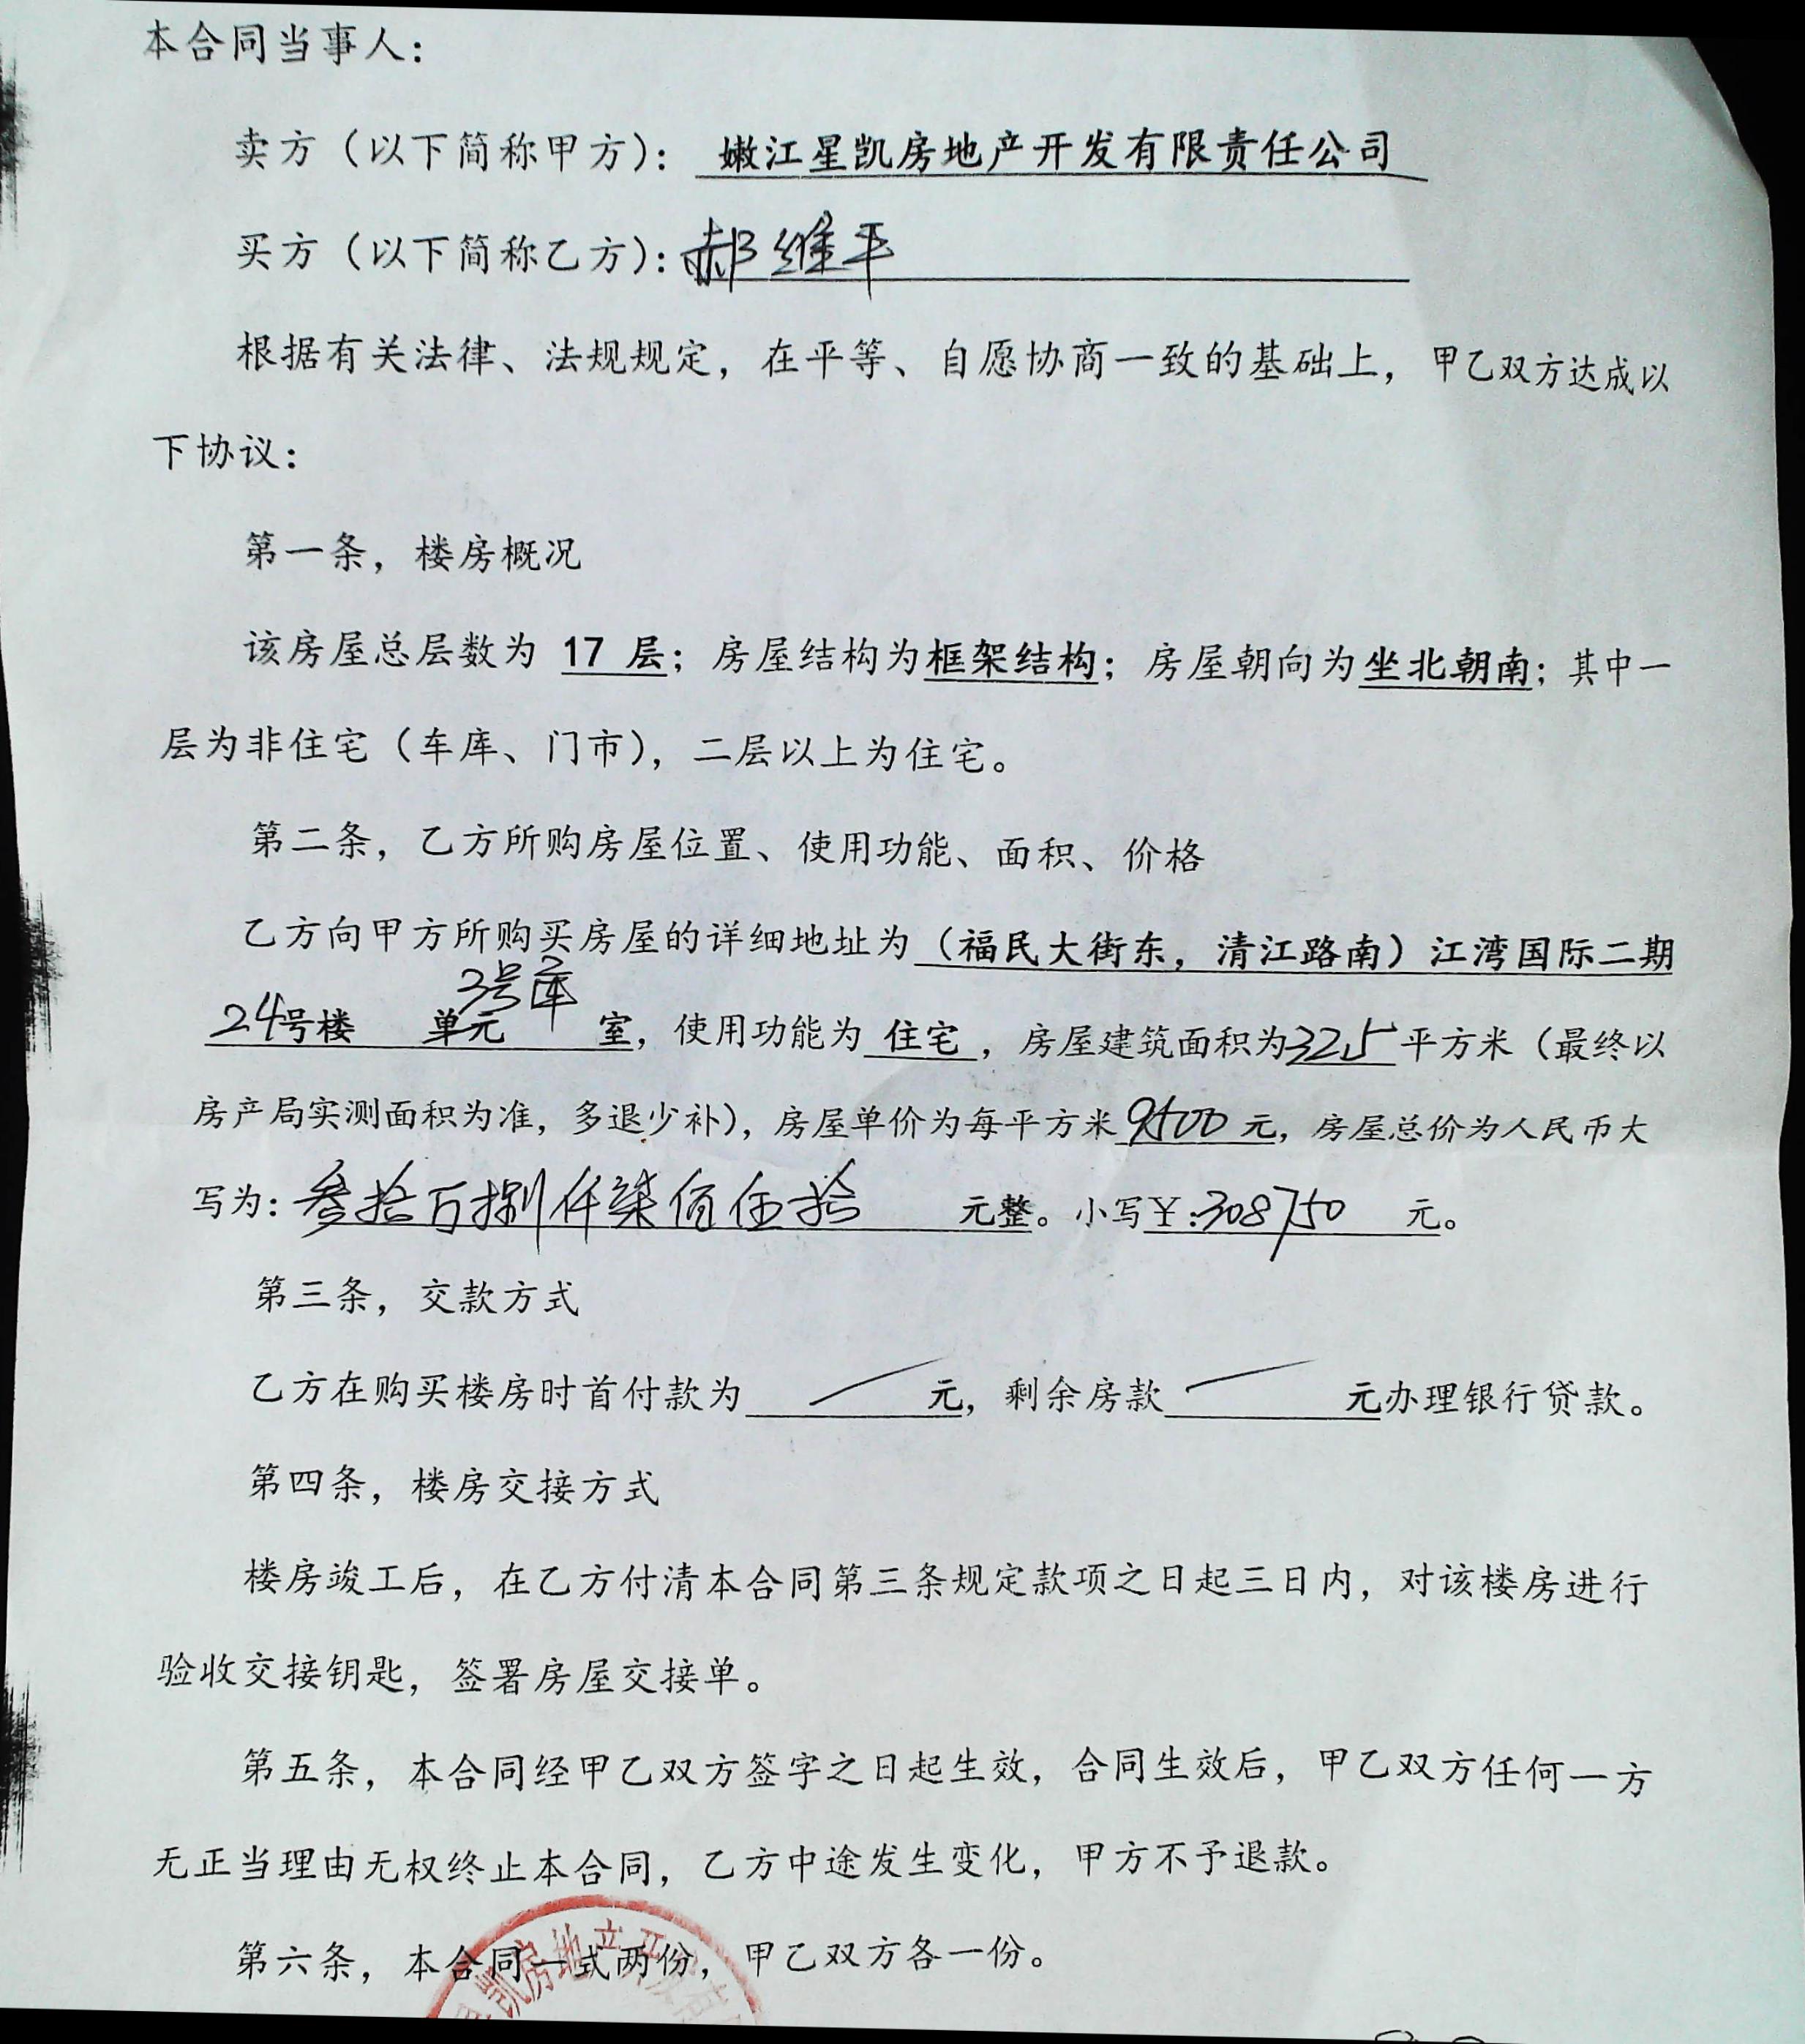 本合同当事人：
卖方（以下简称甲方）： 嫩江星凯房地产开发有限责任公司
买方（以下简称乙方）：郝维平
根据有关法律、法规规定，在平等、自愿协商一致的基础上，甲乙双方达成以
下协议：
第一条，楼房概况
该房屋总层数为 17 层；房屋结构为框架结构；房屋朝向为坐北朝南；其中一
层为非住宅（车库、门市），二层以上为住宅。
第二条，乙方所购房屋位置、使用功能、面积、价格
乙方向甲方所购买房屋的详细地址为（福民大街东，清江路南）江湾国际二期
24号楼 单元 3号库 室，使用功能为 住宅 ，房屋建筑面积为32.5平方米（最终以
房产局实测面积为准，多退少补），房屋单价为每平方米9500 元，房屋总价为人民币大
写为：叁拾万捌仟柒佰伍拾 元整。小写￥：308750 元。
第三条，交款方式
乙方在购买楼房时首付款为 元，剩余房款 元办理银行贷款。
第四条，楼房交接方式
楼房竣工后，在乙方付清本合同第三条规定款项之日起三日内，对该楼房进行
验收交接钥匙，签署房屋交接单。
第五条，本合同经甲乙双方签字之日起生效，合同生效后，甲乙双方任何一方
无正当理由无权终止本合同，乙方中途发生变化，甲方不予退款。
第六条，本合同一式两份，甲乙双方各一份。
凯房地产开